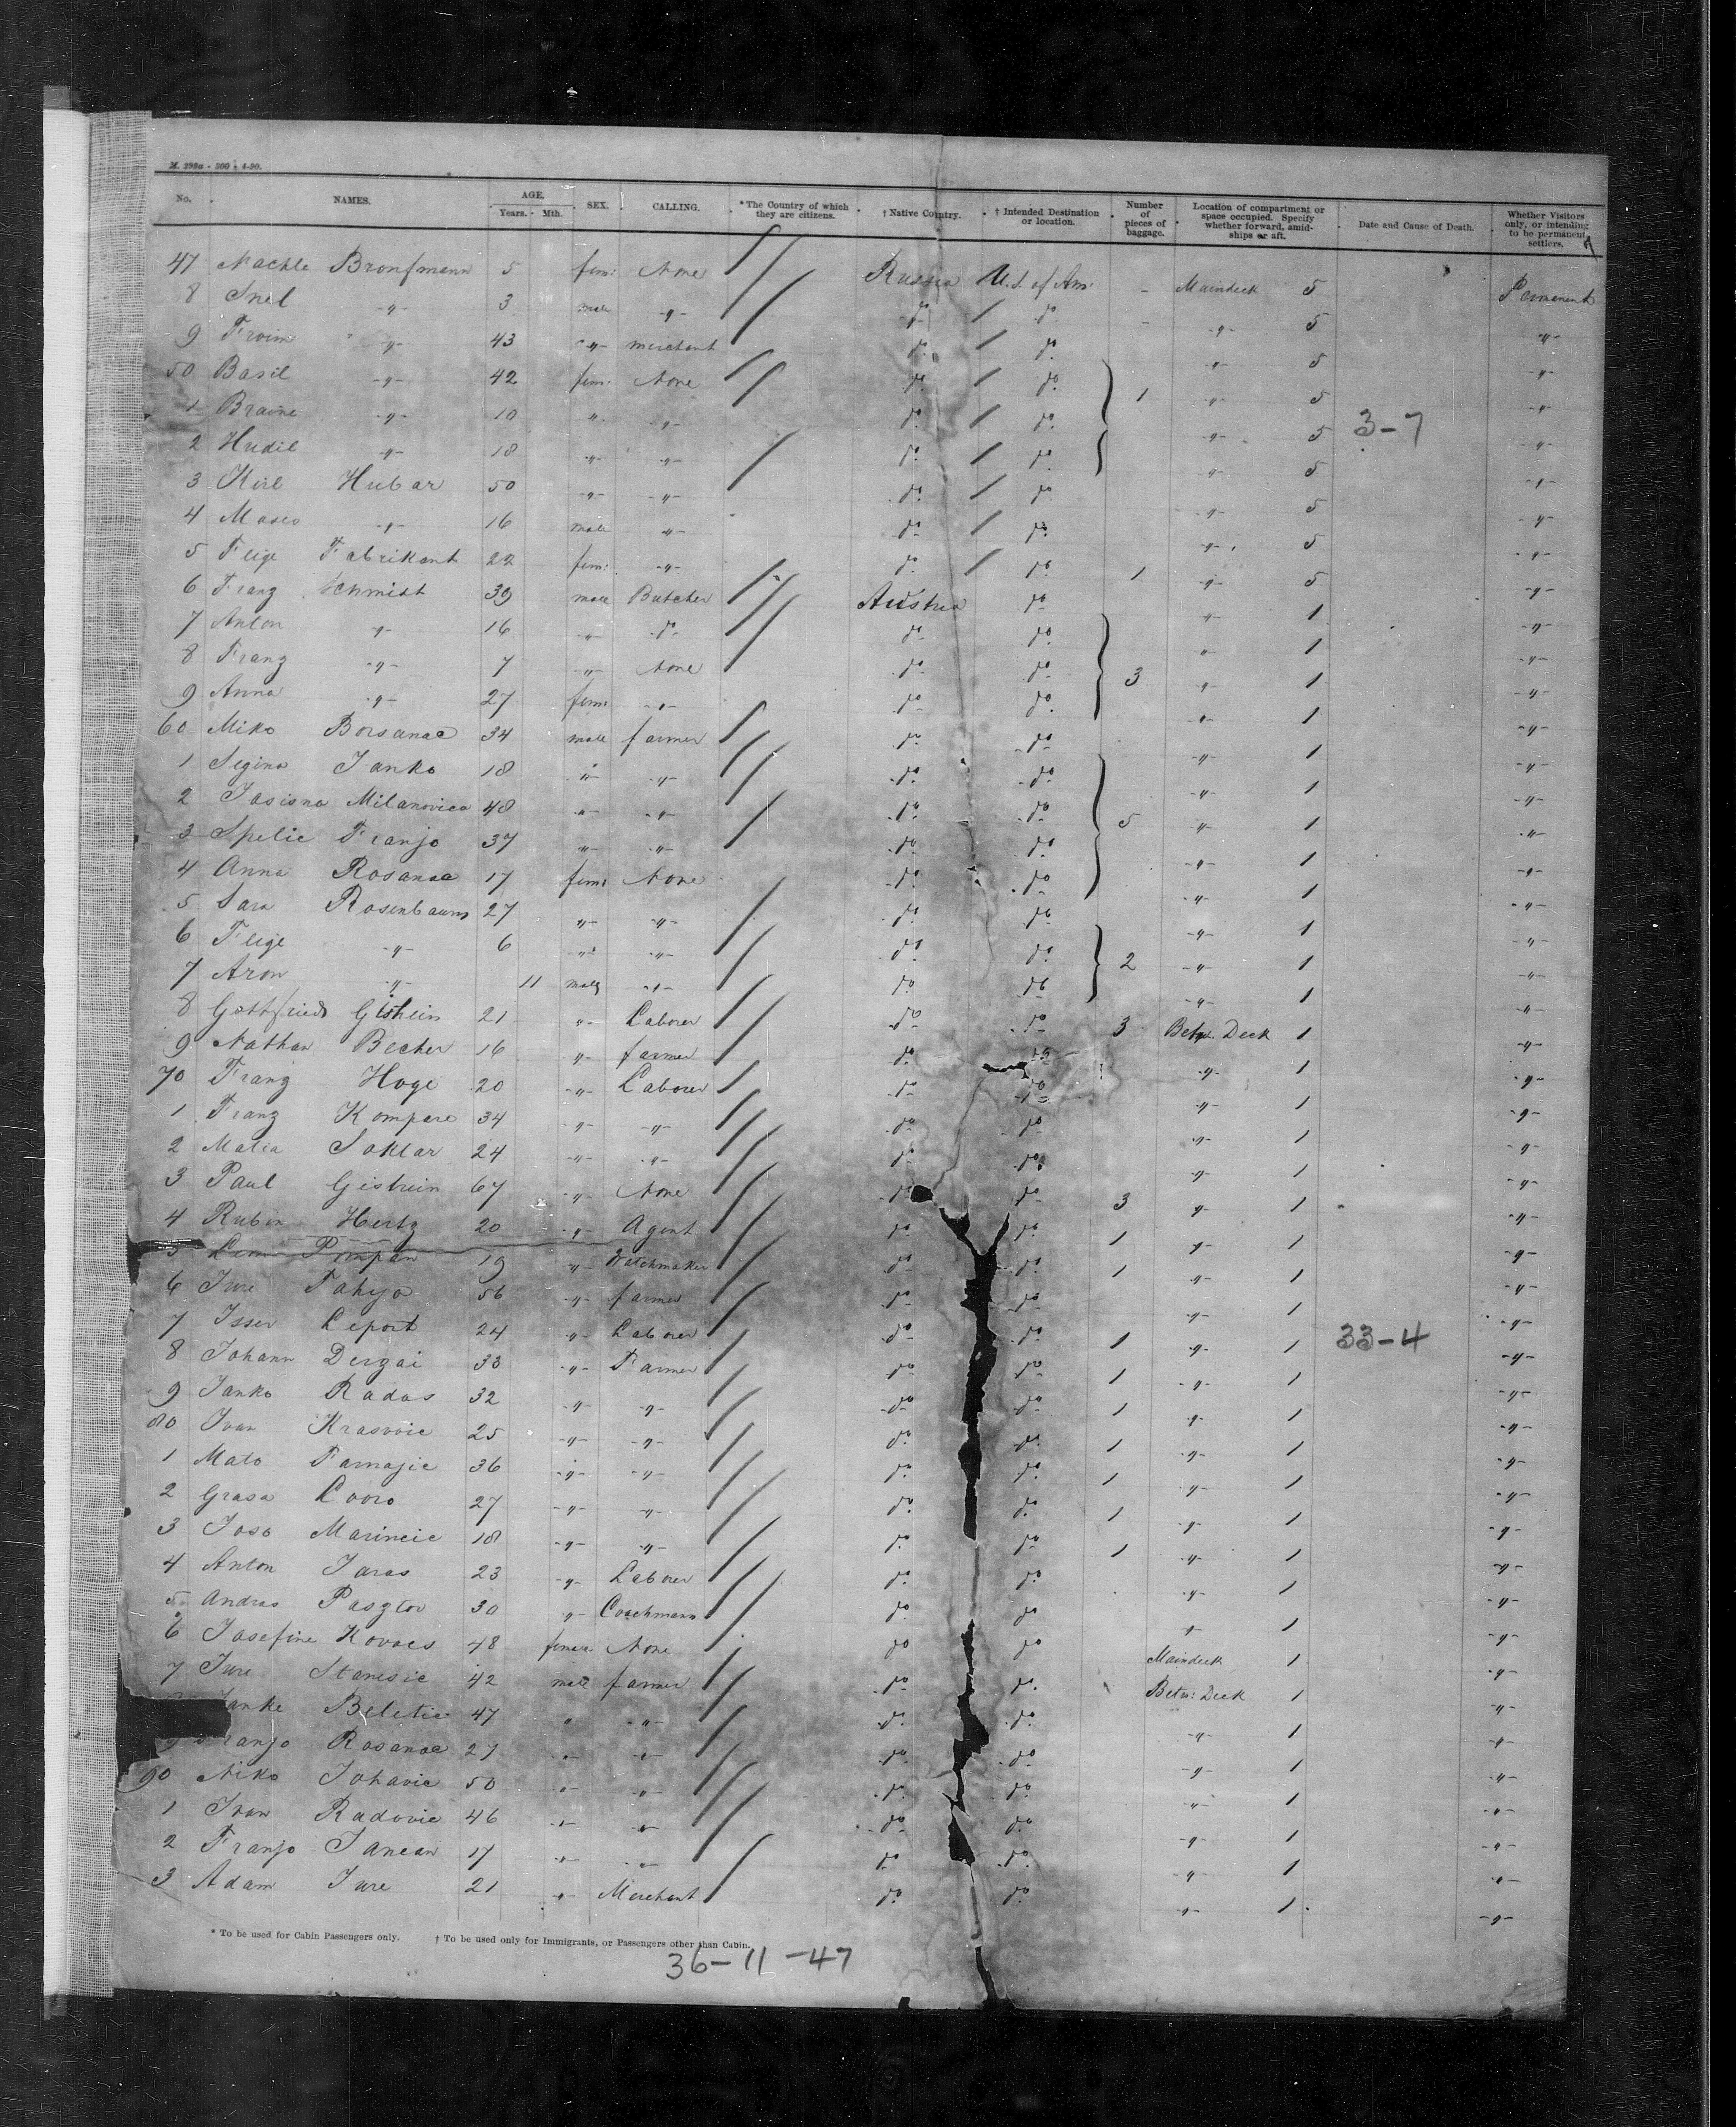 M. 298a - 500 - 4-90.
No. NAMES. AGE. Years. Mth. SEX. CALLING. * The Country of which they are citizens. † Native Country. † Intended Destination or location. Number of pieces of baggage. Location of compartment or space occupied. Specify whether forward, amidships or aft. Date and Cause of Death. Whether Visitors only, or intending to be permanent settlers.
47 Nachle Bronfmann 5 fem: None Russia U.S. of Am: - Maindeck 5 Permanent
8 Srul -"- 3 male -"- do. do. - -"- 5 -"-
9 Froim -"- 43 -"- merchant do. do. -"- 5 -"-
50 Basil -"- 42 fem: None do. do. 1 -"- 5 -"-
1 Braine -"- 10 -"- -"- do. do. -"- 5 3-7 -"-
2 Hudil -"- 18 -"- -"- do. do. -"- 5 -"-
3 Keil Hubar 50 -"- -"- do. do. -"- 5 -"-
4 Moses -"- 16 male -"- do. do. -"- 5 -"-
5 Feige Fabrikant 22 fem: -"- do. do. 1 -"- 5 -"-
6 Franz Schmidt 39 male Butcher Austria do -"- 1 -"-
7 Anton -"- 16 -"- do. do do -"- 1 -"-
8 Franz -"- 7 -"- None do. do 3 -"- 1 -"-
9 Anna -"- 27 fem: -"- do do. -"- 1 -"-
60 Miko Borsanac 34 male farmer do. do -"- 1 -"-
1 Segina Janko 18 -"- -"- do. do -"- 1 -"-
2 Jasisna Milanovica 48 -"- -"- do. do 5 -"- 1 -"-
3 Spelic Franjo 37 -"- -"- do. do. -"- 1 -"-
4 Anna Rosanac 17 fem: None do. do -"- 1 -"-
5 Sara Rosenbaum 27 -"- -"- do. do -"- 1 -"-
6 Feige -"- 6 -"- -"- do. do. 2 -"- 1 -"-
7 Aron -"- 11 male -"- do. do -"- 1 -"-
8 Gottfried Gistrein 21 -"- Laborer do. do 3 Betw. Deck 1 -"-
9 Nathan Becher 16 -"- farmer do. do -"- 1 -"-
70 Franz Hoge 20 -"- Laborer do. do -"- 1 -"-
1 Franz Kompare 34 -"- -"- do. do -"- 1 -"-
2 Matia Soklar 24 -"- -"- do. do. -"- 1 -"-
3 Paul Gistrein 67 -"- None do do 3 -"- 1 -"-
4 Rubin Hertz 20 -"- Agent do. do. 1 -"- 1 -"-
5 Pompan 19 -"- Watchmaker do do. 1 -"- 1 -"-
6 Jure Tahija 56 -"- farmer do. do -"- 1 -"-
7 Isser Leport 24 -"- Laborer do do. 1 -"- 1 33-4 -"-
8 Johann Dergai 33 -"- Farmer do. do. 1 -"- 1 -"-
9 Janko Radas 32 -"- -"- do. do. 1 -"- 1 -"-
80 Ivan Krasovic 25 -"- -"- do. do. 1 -"- 1 -"-
1 Mato Famajic 36 -"- -"- do. do. 1 -"- 1 -"-
2 Grasa Lovro 27 -"- -"- do. do. 1 -"- 1 -"-
3 Joso Marincic 18 -"- -"- do. do 1 -"- 1 -"-
4 Anton Jaras 23 -"- Laborer do. do. -"- 1 -"-
5 Andras Pasztor 30 -"- Coachmann do. do -"- 1 -"-
6 Josefine Kovacs 48 female None do do Maindeck 1 -"-
7 Jure Stanesic 42 male farmer do. do. Betw: Deck 1 -"-
Janke Beletic 47 " -"- do. do. -"- 1 -"-
9 Franjo Rosanac 27 -"- -"- do. do -"- 1 -"-
90 Niko Johavic 50 -"- -"- do. do. -"- 1 -"-
1 Ivan Radovic 46 -"- -"- do. do. -"- 1 -"-
2 Franjo Jancan 17 -"- -"- do. do. -"- 1 -"-
3 Adam Jure 21 -"- Merchant do. do. -"- 1 -"-
* To be used for Cabin Passengers only. † To be used only for Immigrants, or Passengers other than Cabin.
36-11-47